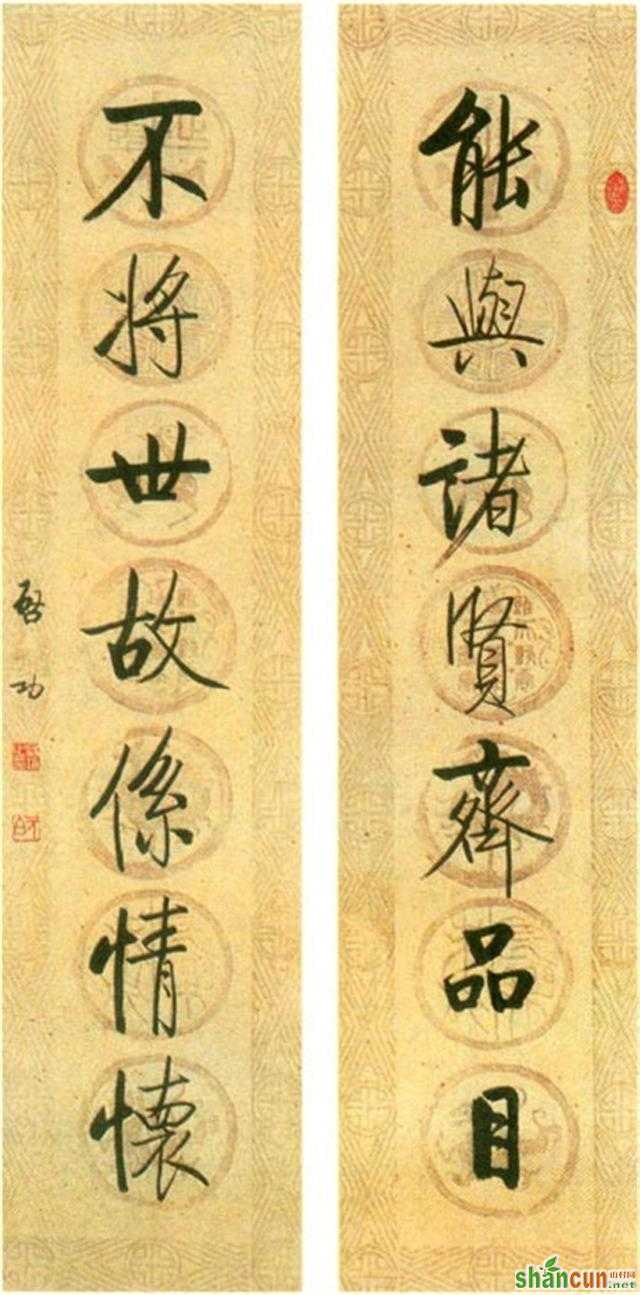 能與諸賢齊品目
不將世故係情懷
啓功
shancun
山村网
.net